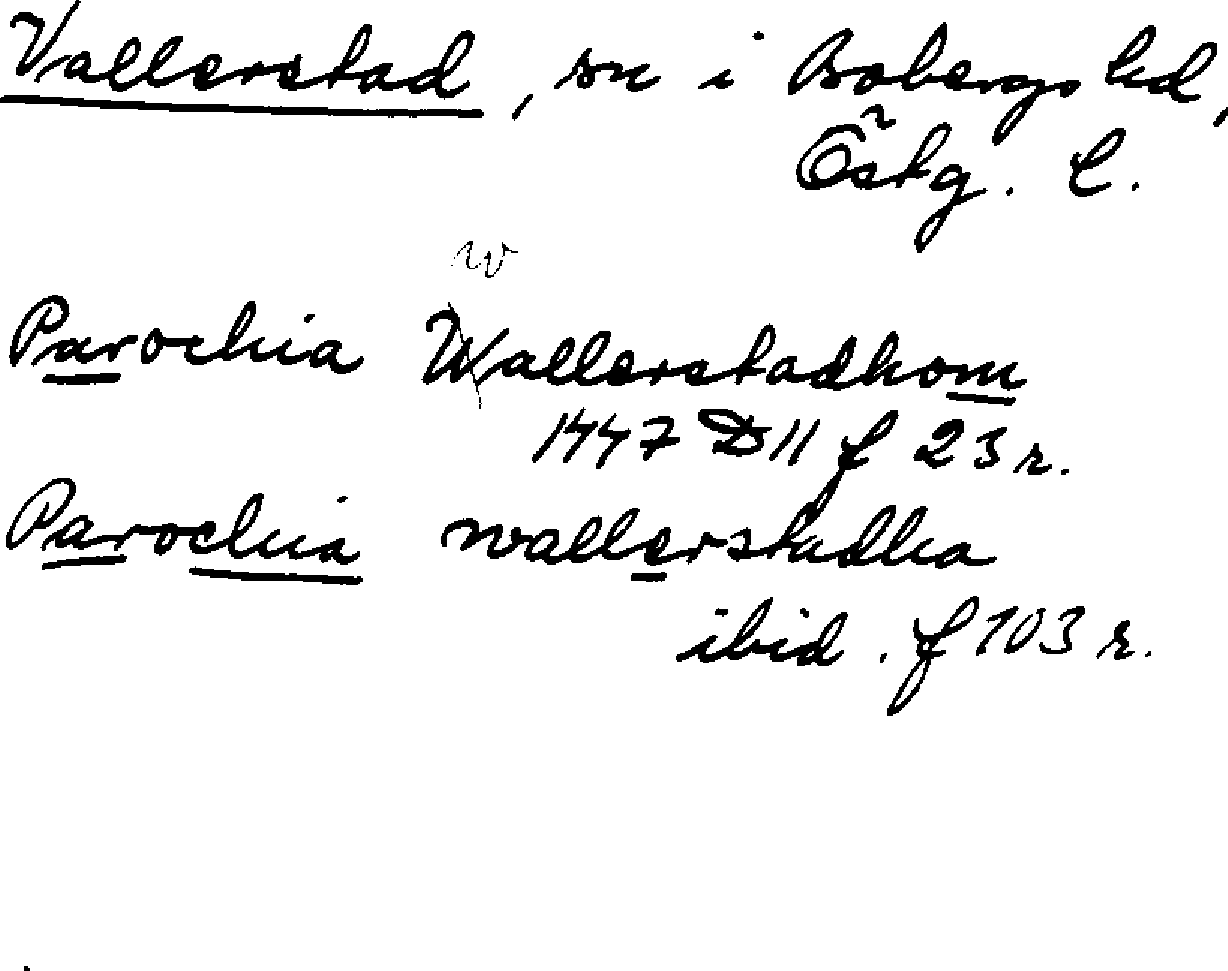 Vallerstad, sn i Bobergs hd,
Östg. l.
w
Parochia Wallerstadhom
1447 D11 f 23 r.
Parochia wallerstadha
ibid. f 103 r.